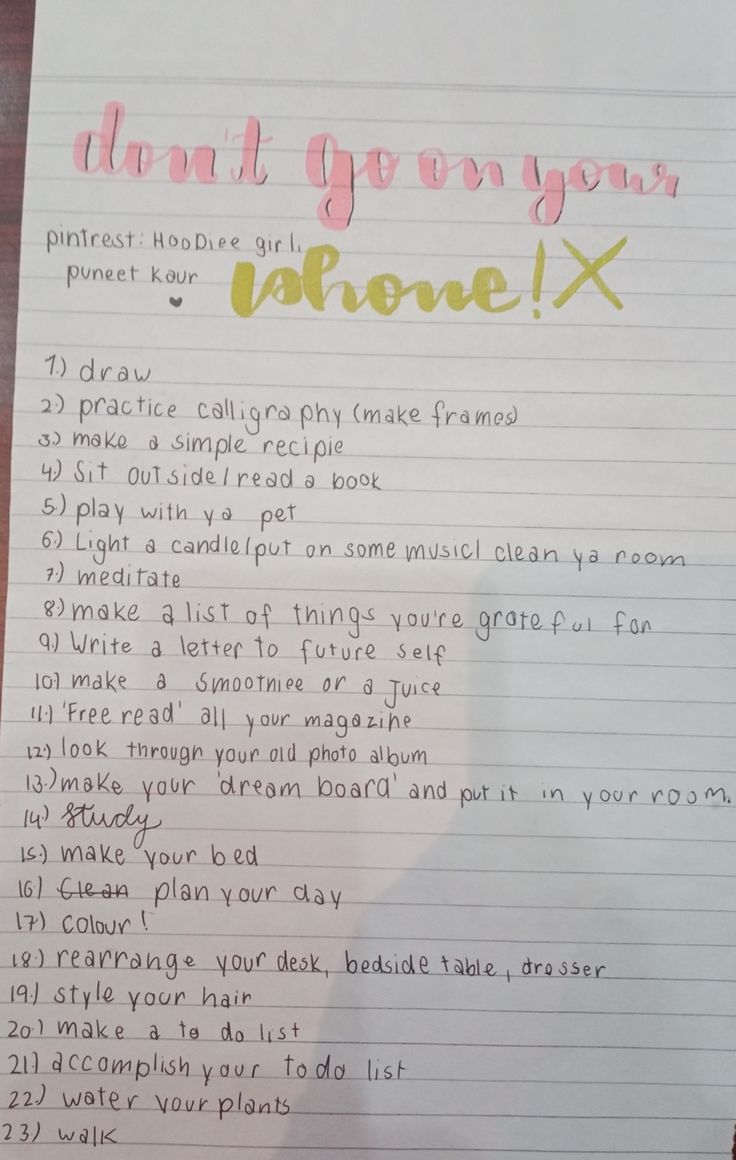 don't go on your
pintrest: HooDiee girl
puneet kour
phone! X
1.) draw
2.) practice calligraphy (make frames)
3.) make a simple recipie
4.) Sit outside/read a book
5.) play with ya pet
6.) Light a candle/put on some music/ clean ya room
7.) meditate
8.) make a list of things you're grateful for
9.) Write a letter to future self
10.) make a smoothiee or a Juice
11.) 'Free read' all your magazine
12.) look through your old photo album
13.) make your 'dream board' and put it in your room.
14) study
15.) make your bed
16) Clean plan your day
17) colour!
18.) rearrange your desk, bedside table, drosser
19.) style your hair
20.) make a to do list
21) accomplish your to do list
22.) water your plants
23) walk